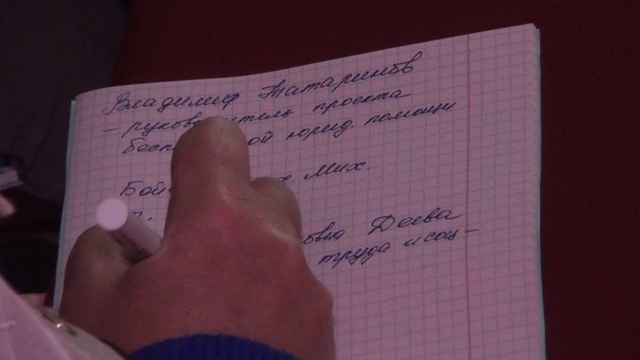 Владимир Татаринов
- руков тель проекта
бесп ной юрид. помощи
Бой х. Мих.
овна Деева
труда и соц-